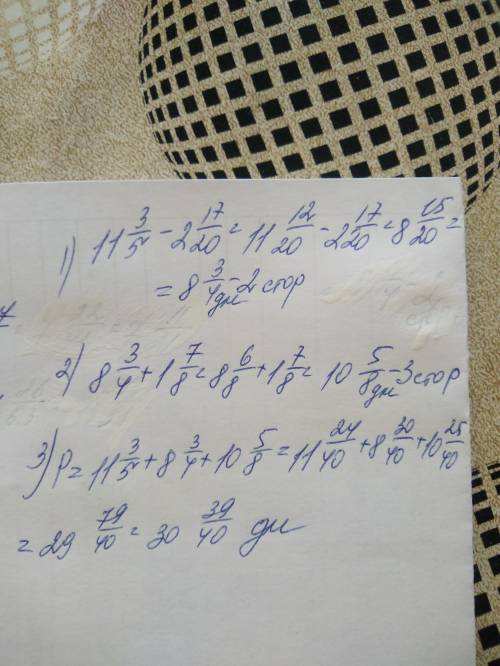 1) 11 3/5 - 2 17/20 = 11 12/20 - 2 17/20 = 8 15/20 =
= 8 3/4 дм - 2 стор
2) 8 3/4 + 1 7/8 = 8 6/8 + 1 7/8 = 10 5/8 дм - 3 стор
3) P = 11 3/5 + 8 3/4 + 10 5/8 = 11 24/40 + 8 30/40 + 10 25/40
= 29 79/40 = 30 39/40 дм